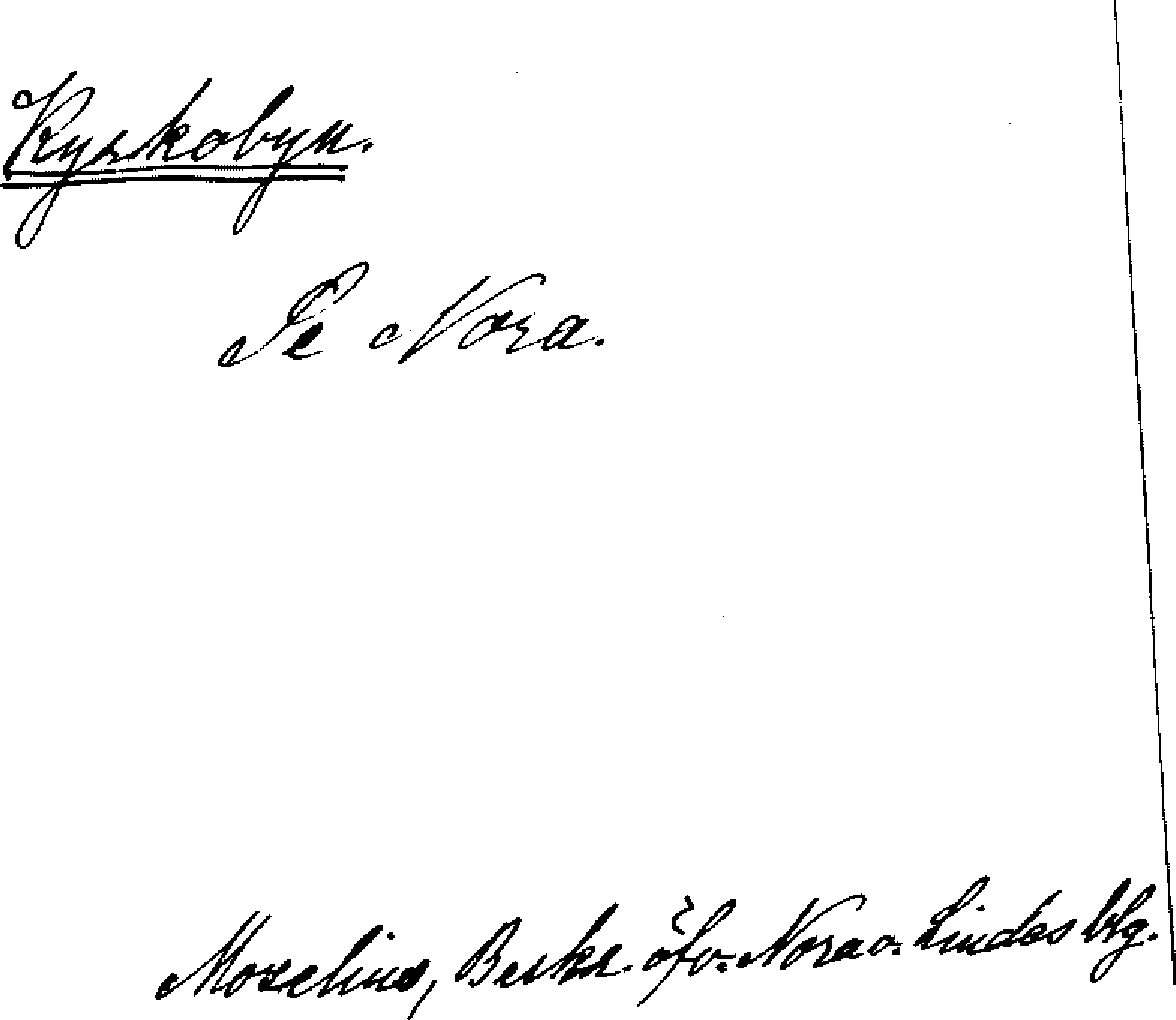 Kyrkobyn.
Se Nora.
Moxelius, Beskr. öfv. Nora o. Lindes blg.